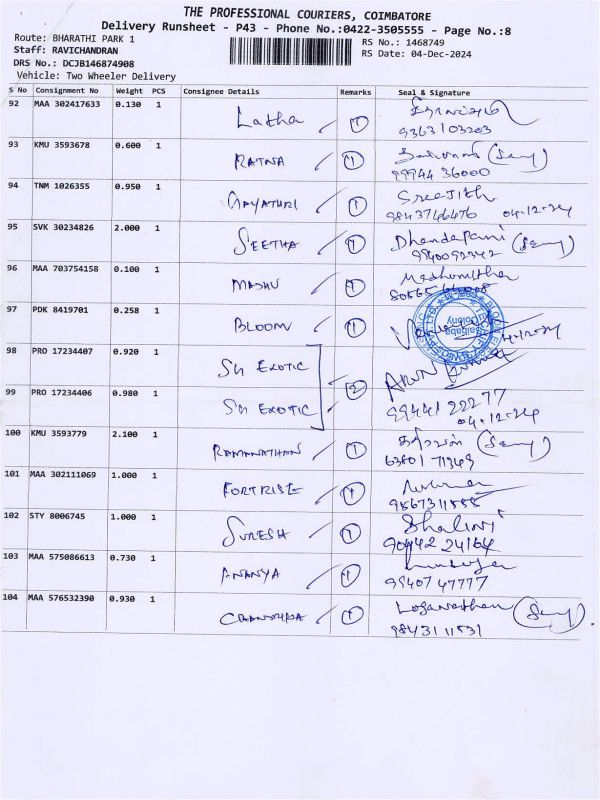 THE PROFESSIONAL COURIERS, COIMBATORE
Delivery Runsheet - P43 - Phone No.:0422-3505555 - Page No.:8
Route: BHARATHI PARK 1
RS No.: 1468749
Staff: RAVICHANDRAN
RS Date: 04-Dec-2024
DRS No.: DCJB146874908
Vehicle: Two Wheeler Delivery
S No Consignment No Weight PCS Consignee Details Remarks Seal & Signature
92 MAA 302417633 0.130 1 Latha 1
9363103203
93 KMU 3593678 0.600 1 RATNA 1
99944 36000
94 TNM 1026355 0.950 1 GAYATHRI 1 Sreejith
9843746476 04-12-24
95 SVK 30234826 2.000 1 SEETHA 1 Dhandapani
9940092342
96 MAA 703754158 0.100 1 MADHU 1 Madhumitha
97 PDK 8419701 0.258 1 BLOOM 1
98 PRO 17234407 0.920 1 Sri EXOTIC 2 ARUN Kumar
99 PRO 17234406 0.980 1 Sri EXOTIC
99441 22277
04-12-24
100 KMU 3593779 2.100 1 RAMANATHAN 1
63801 71349
101 MAA 302111069 1.000 1 FORTRISE 1
102 STY 8006745 1.000 1 SURESH 1 Shalini
90942 24164
103 MAA 575086613 0.730 1 ANANYA 1
99407 47777
104 MAA 576532390 0.930 1 CHANDRA 1 Loganathan
98431 11531